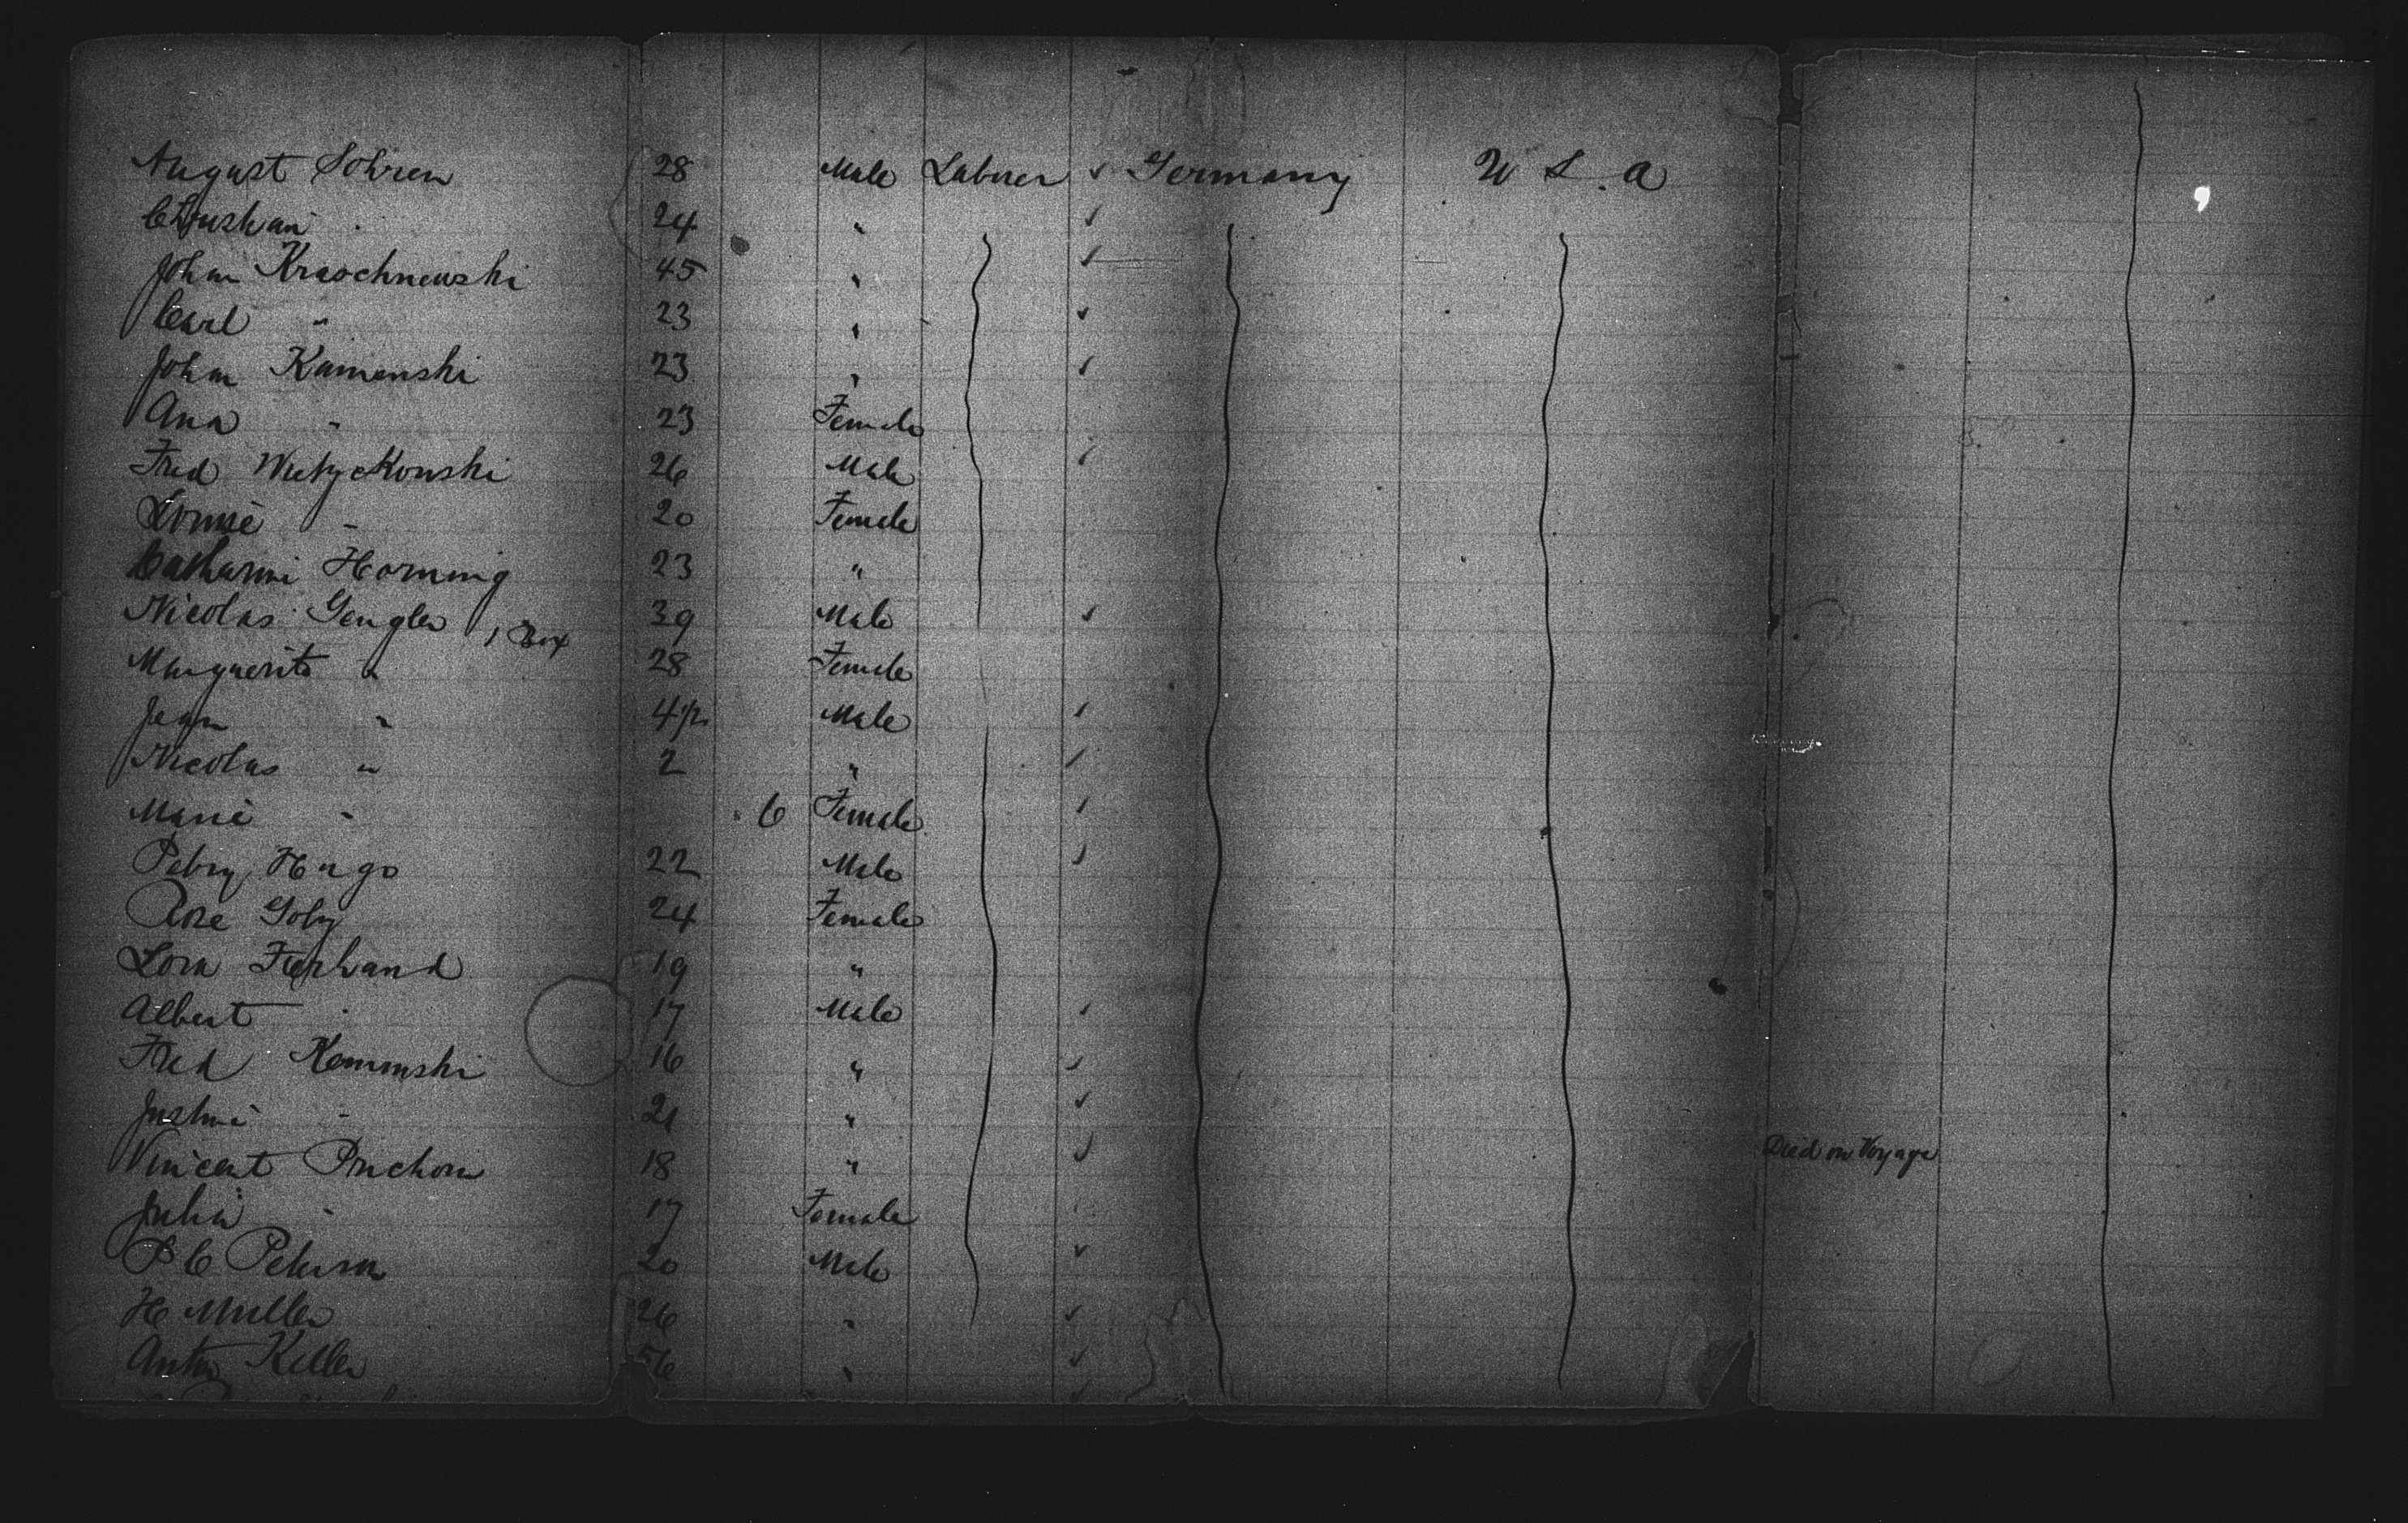 August Sohren 28 Male Laborer ✓ Germany U S. A
Christian " 24 " ✓
Johan Kraschnewski 45 " ✓
Carl " 23 " ✓
Johan Kamenski 23 " ✓
Ana " 23 Female
Fred 26 Male ✓
Louise " 20 Female
Catharini Horning 23 "
Nicolas Gengler 1 Box 39 Male ✓
Marguerite " 28 Female
Jean " 4 1/2 Male ✓
Nicolas " 2 " ✓
Marie " 6 Female ✓
Petry Hugo 22 Male ✓
Rose Goby 24 Female
Lora Ferhand 19 "
Albert " 17 Male ✓
Fred Kominski 16 " ✓
Justin " 21 " ✓
Vincent 18 " ✓ Died on Voyage
Julia " 17 Female
P C Peterson 20 Male ✓
H Muller 26 " ✓
Anton Keller 56 " ✓